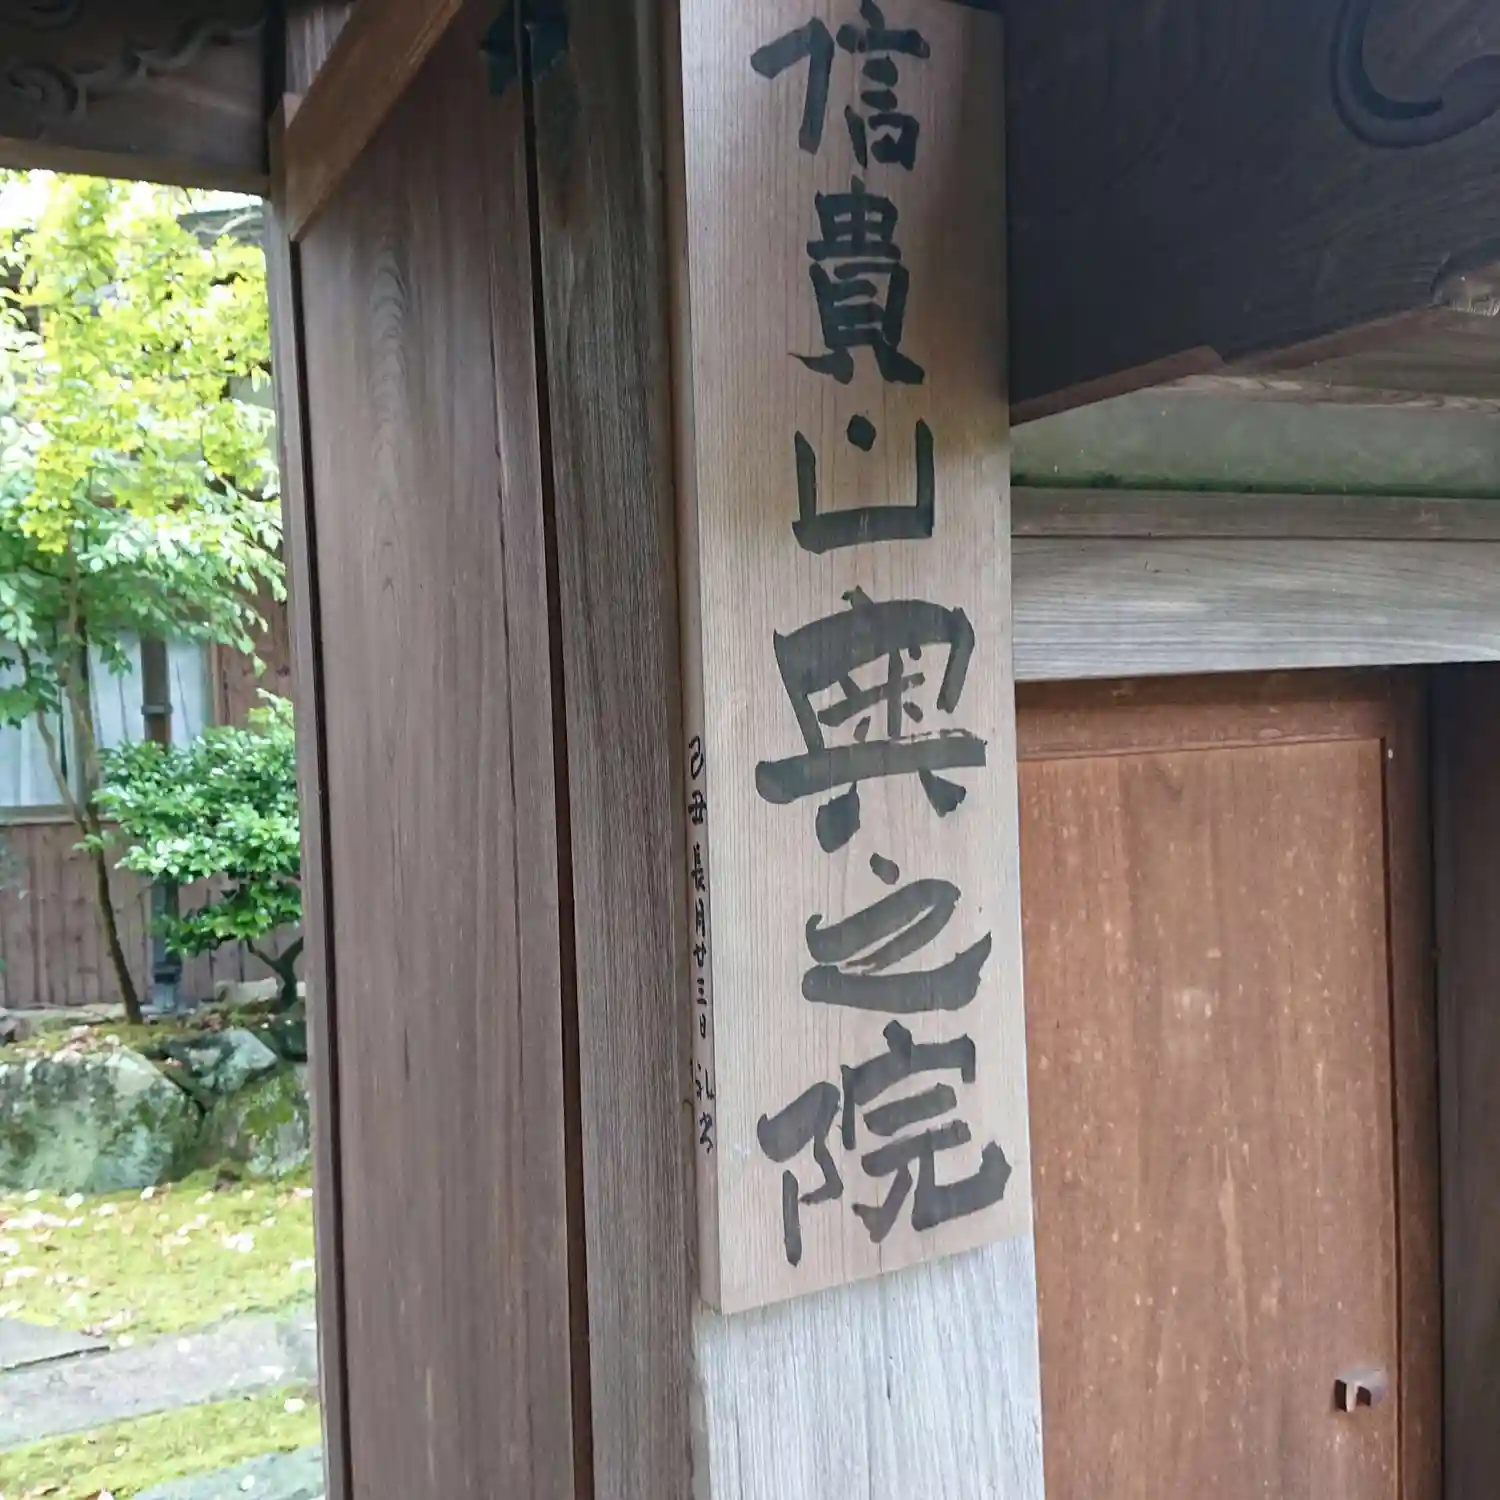 信貴山奥之院
己丑長月廿三日 礼書